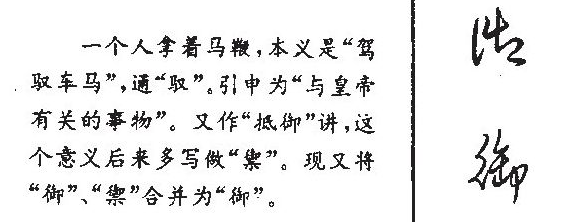 一个人拿着马鞭，本义是“驾
驭车马”，通“驭”。引申为“与皇帝
有关的事物”。又作“抵御”讲，这
个意义后来多写做“禦”。现又将
“御”、“禦”合并为“御”。
御